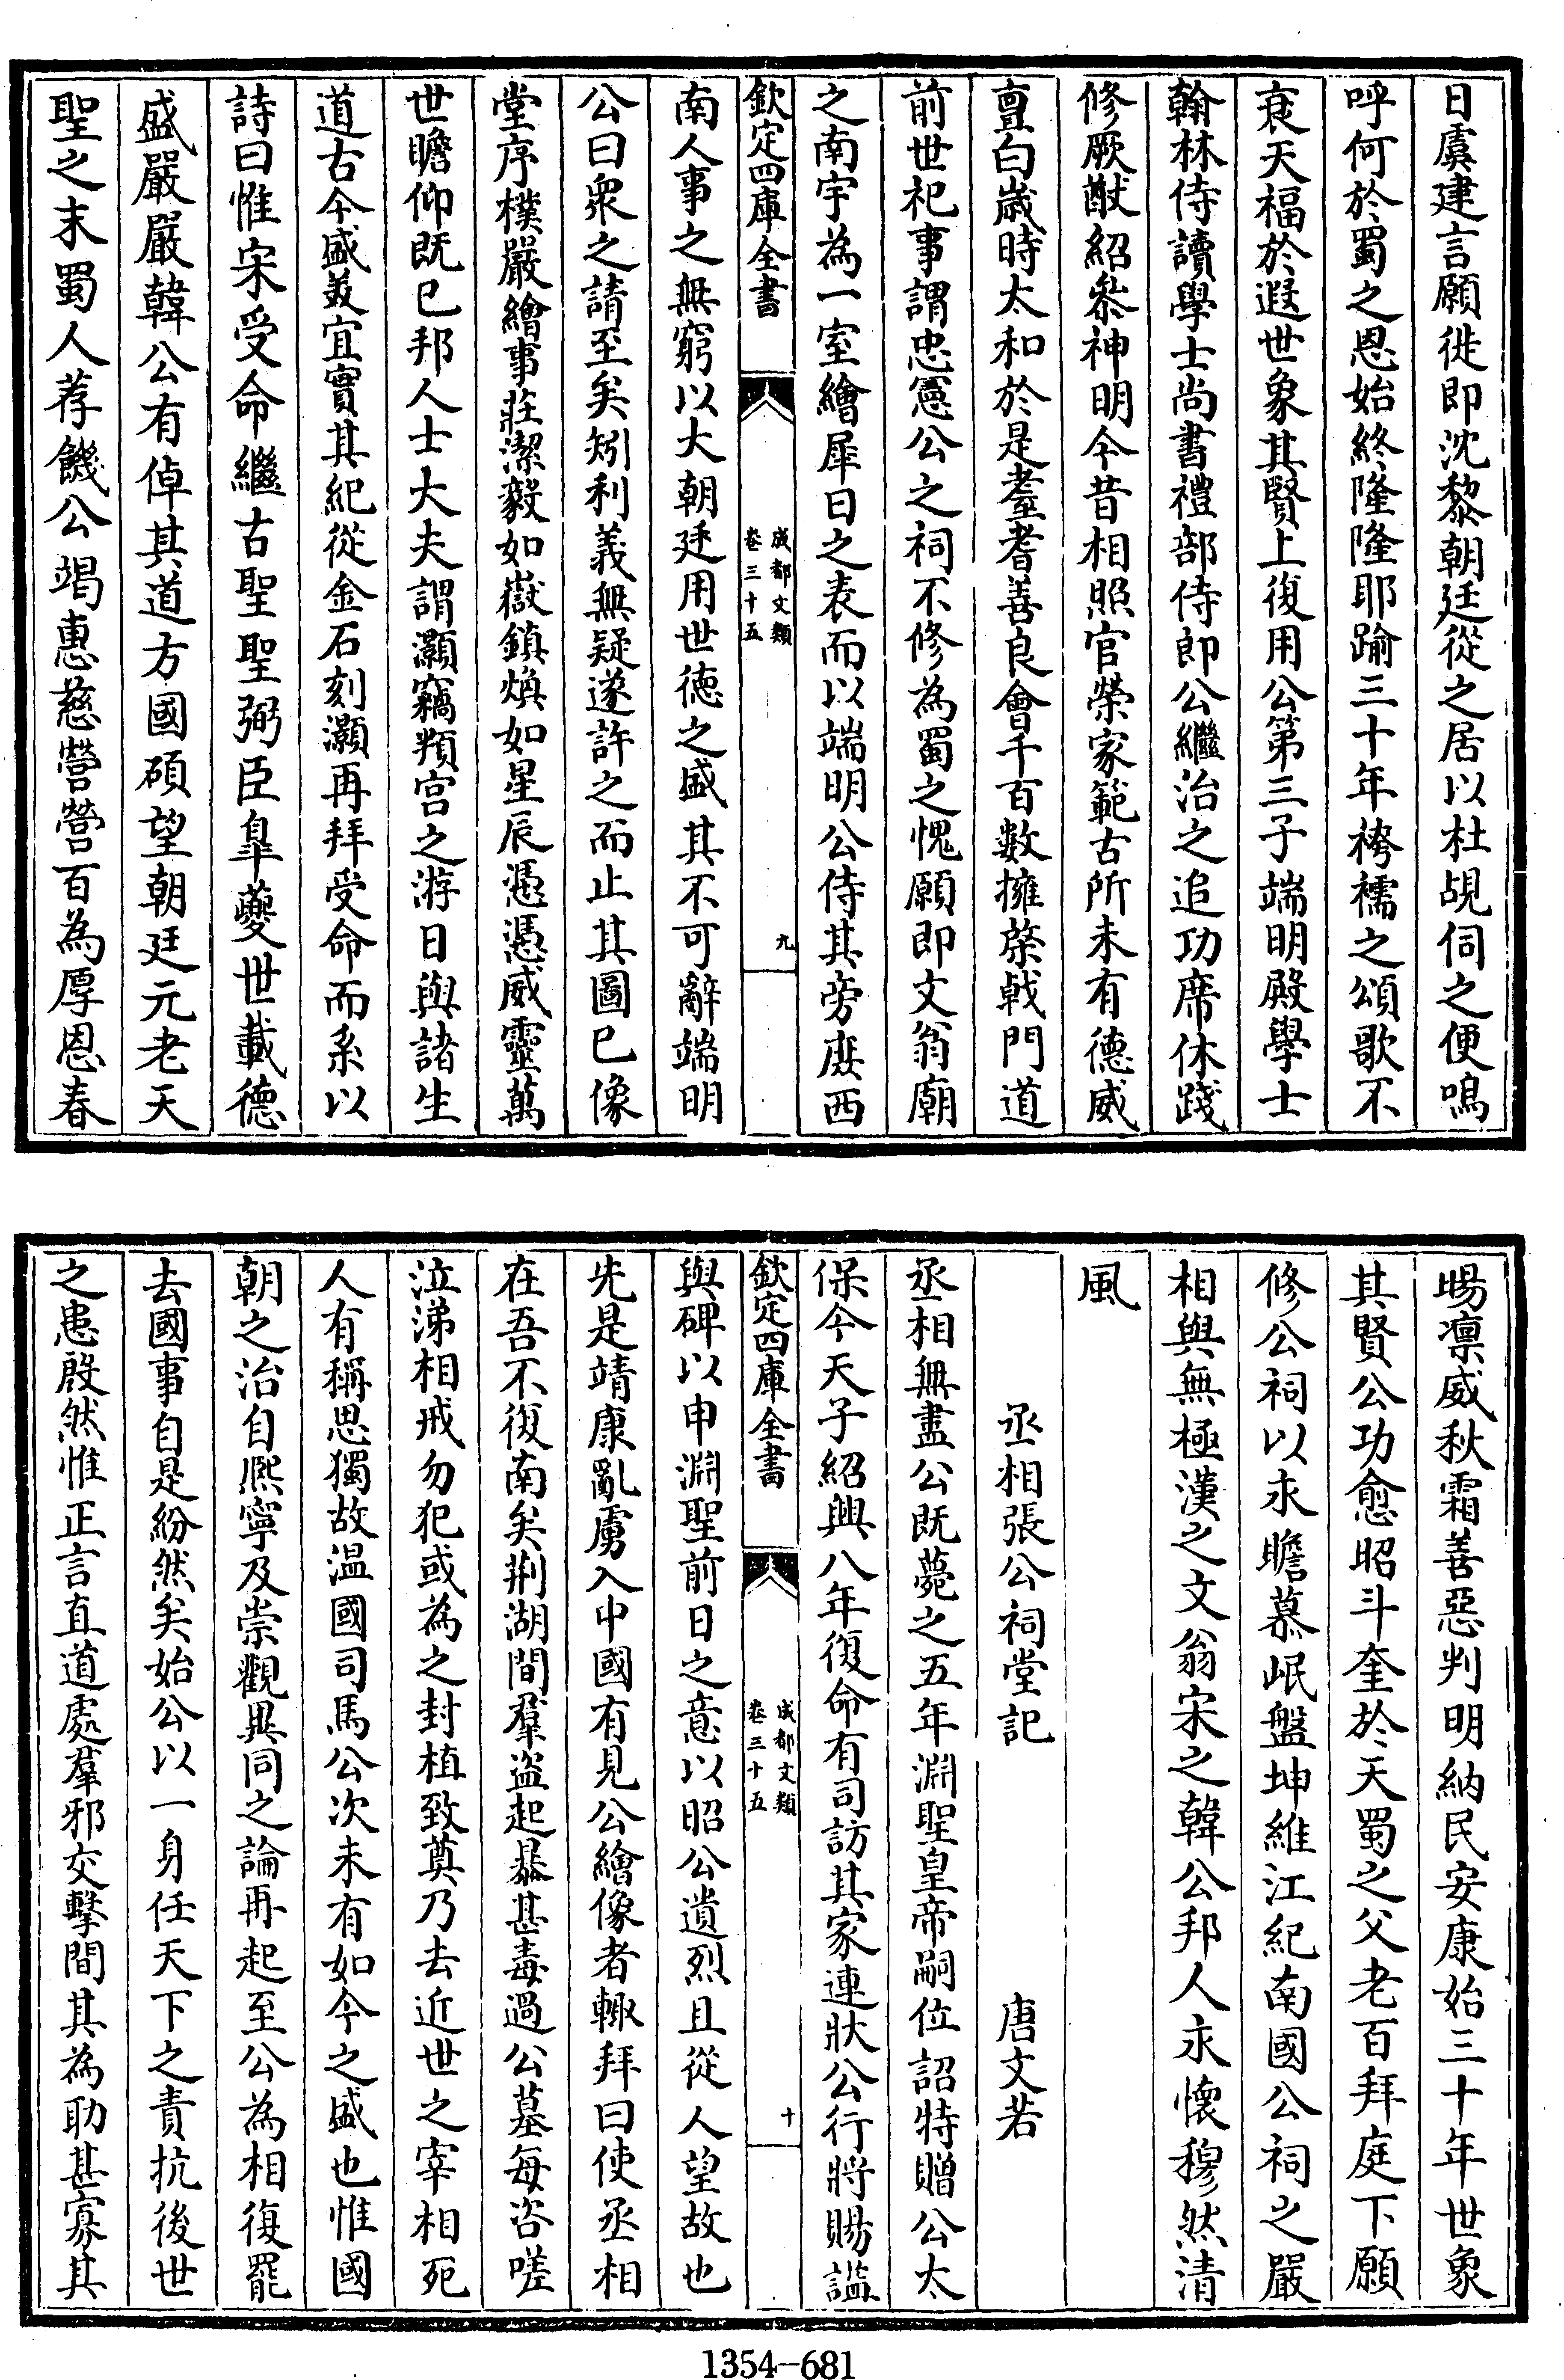 日虞建言願徙即沈黎朝廷從之居以杜覘伺之便鳴
呼何於蜀之恩始終隆隆耶踰三十年袴襦之頌歌不
衰天福於遐世象其賢上復用公第三子端明殿學士
翰林侍讀學士尚書禮部侍郎公繼治之追功席休踐
修厥猷紹叅神明今昔相照官榮家範古所未有德威
亶白歲時太和於是耋耆善良會千百數擁棨戟門道
前世祀事謂忠憲公之祠不修為蜀之愧願即文翁廟
之南宇為一室繪犀日之表而以端明公侍其旁庶西
欽定四庫全書
成都文類
卷三十五
九
南人事之無窮以大朝廷用世德之盛其不可辭端明
公曰衆之請至矣矧利義無疑遂許之而止其圖已像
堂序樸嚴繪事莊潔毅如嶽鎮煥如星辰憑憑威靈萬
世瞻仰既已邦人士大夫謂灝竊頖宫之游日與諸生
道古今盛美宜實其紀從金石刻灝再拜受命而系以
詩曰惟宋受命繼古聖聖弼臣臯夔世載德
盛嚴嚴韓公有倬其道方國碩望朝廷元老天
聖之末蜀人荐饑公竭惠慈營營百為厚恩春
暘凛威秋霜善惡判明納民安康始三十年世象
其賢公功愈昭斗奎於天蜀之父老百拜庭下願
修公祠以永瞻慕岷盤坤維江紀南國公祠之嚴
相與無極漢之文翁宋之韓公邦人永懷穆然清
風
丞相張公祠堂記 唐文若
丞相無盡公既薨之五年淵聖皇帝嗣位詔特贈公太
保今天子紹興八年復命有司訪其家連狀公行將賜諡
欽定四庫全書
成都文類
卷三十五
十
與碑以申淵聖前日之意以昭公遺烈且從人望故也
先是靖康亂虜入中國有見公繪像者輙拜曰使丞相
在吾不復南矣荆湖間羣盗起暴甚毒過公墓每咨嗟
泣涕相戒勿犯或為之封植致奠乃去近世之宰相死
人有稱思獨故温國司馬公次未有如今之盛也惟國
朝之治自熈寧及崇觀異同之論再起至公為相復罷
去國事自是紛然矣始公以一身任天下之責抗後世
之患殷然惟正言直道處羣邪交擊間其為助甚寡其
1354-681